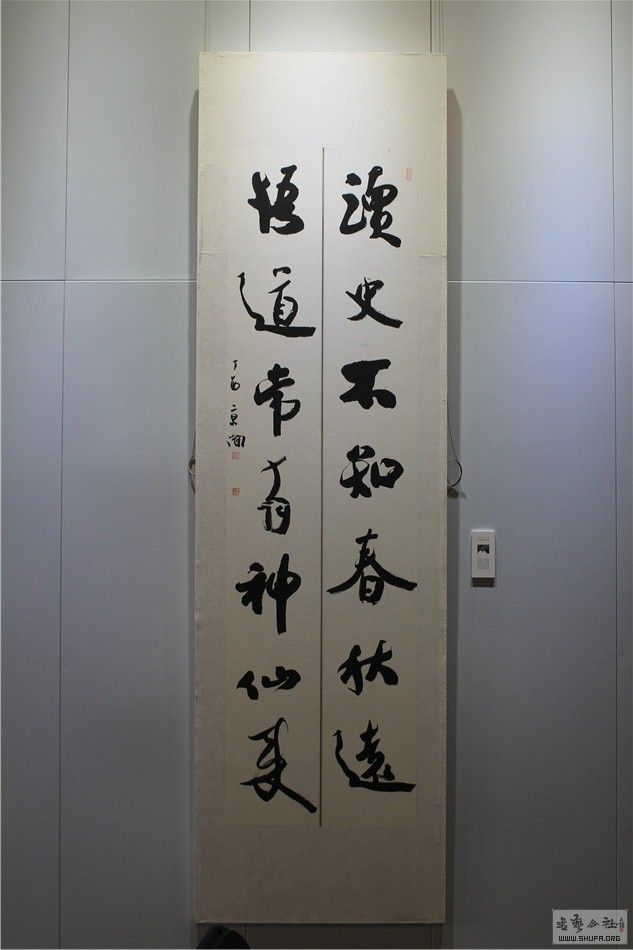 讀史不知春秋遠
悟道常有神仙來
丁酉 京闻
书艺公社
WWW.SHUFA.ORG